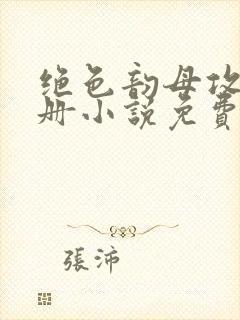 绝色韵母攻
册小說免費
張沛